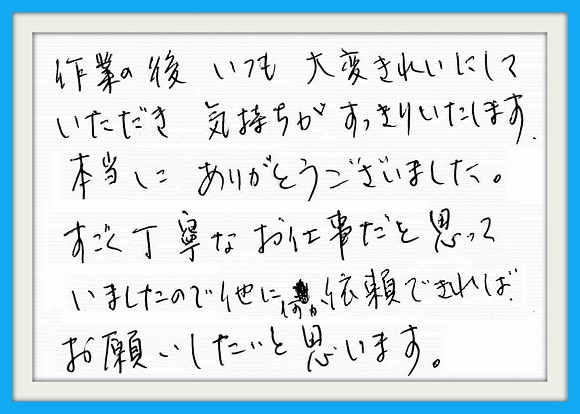 作業の後 いつも 大変きれいにして
いただき 気持ちが すっきりいたします.
本当に ありがとうございました。
すごく丁寧な お仕事だと思って
いましたので他に何か依頼できれば
お願いしたいと思います。